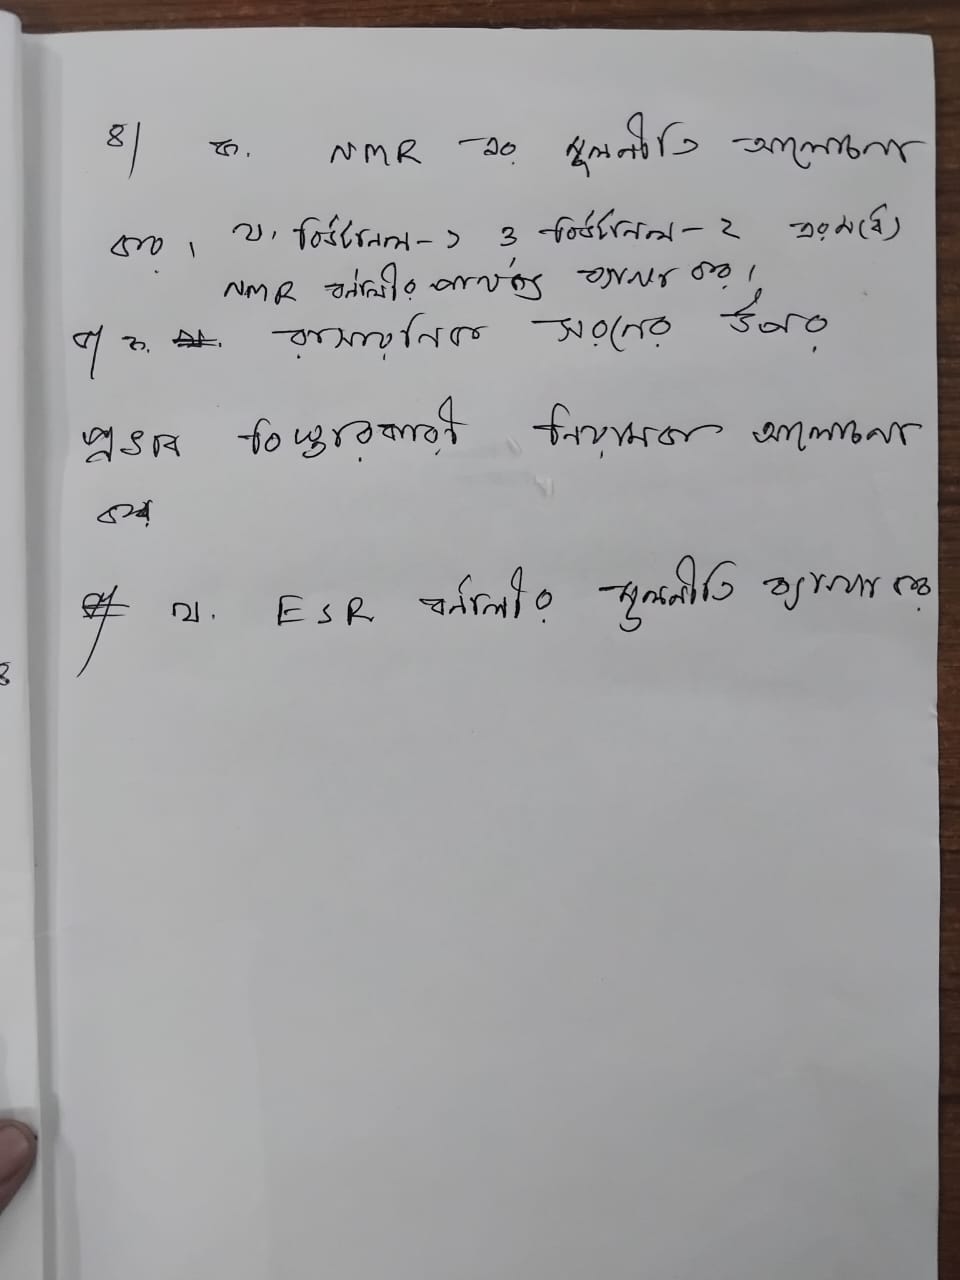 ৪| ক. NMR এর মূলনীতি আলোচনা
কর। খ. বিউটানল-১ ও বিউটানল-২ এর মধ্যে
NMR বর্ণালীর পার্থক্য ব্যাখ্যা কর।
৫| ক. রাসায়নিক সরণের উপর
প্রভাব বিস্তারকারী নিয়ামক আলোচনা
কর
খ. ESR বর্ণালীর মূলনীতি ব্যাখ্যা কর